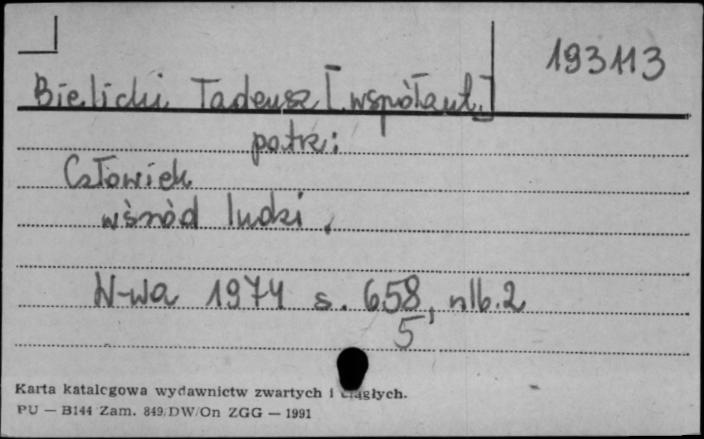 193113
Bielicki Tadeusz [współaut.]
patrz:
Człowiek
wśród ludzi.
W-wa 1974 s. 658, nlb. 2
5
Karta katalogowa wydawnictw zwartych i ciągłych.
PU — B144 Zam. 849/DW/On ZGG — 1991